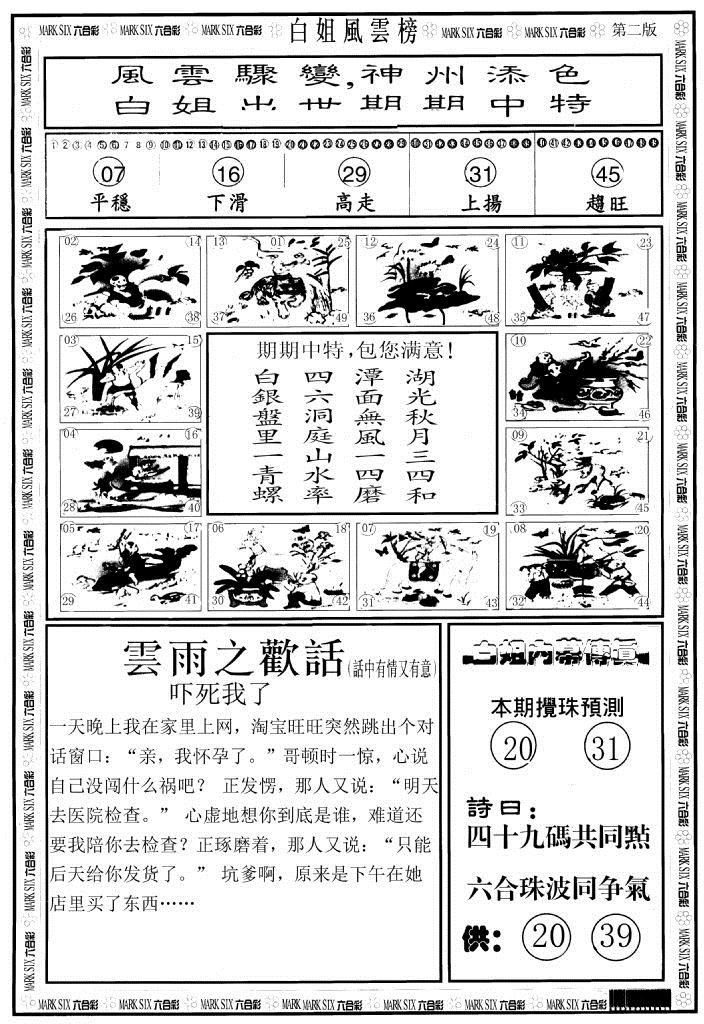 MARK SIX 六合彩 MARK SIX 六合彩 MARK SIX 六合彩 白姐風雲榜 MARK SIX 六合彩 MARK SIX 六合彩 第二版
風雲驟變,神州添色
白姐出世期期中特
1 2 3 4 5 6 7 8 9 10 11 12 13 14 15 16 17 18 19 20 21 22 23 24 25 26 27 28 29 30 31 32 33 34 35 36 37 38 39 40 41 42 43 44 45 46 47 48 49
07 16 29 31 45
平穩 下滑 高走 上揚 趨旺
02 14 26 38
13 01 25 37 49
12 24 36 48
11 23 35 47
03 15 27 39
10 22 34 46
04 16 28 40
09 21 33 45
05 17 29 41
06 18 30 42
07 19 31 43
08 20 32 44
期期中特,包您满意!
湖光秋月三四和
潭面無風一四磨
四六洞庭山水率
白銀盤里一青螺
雲雨之歡話(話中有情又有意)
吓死我了
一天晚上我在家里上网，淘宝旺旺突然跳出个对
话窗口：“亲，我怀孕了。”哥顿时一惊，心说
自己没闯什么祸吧？ 正发愣，那人又说：“明天
去医院检查。” 心虚地想你到底是谁，难道还
要我陪你去检查？正琢磨着，那人又说：“只能
后天给你发货了。” 坑爹啊，原来是下午在她
店里买了东西……
白姐内幕傳真
本期攪珠預測
20 31
詩曰：
四十九碼共同點
六合珠波同争氣
供： 20 39
MARK SIX 六合彩 MARK SIX 六合彩 MARK SIX 六合彩 MARK SIX 六合彩 MARK SIX 六合彩 MARK SIX 六合彩 MARK SIX 六合彩